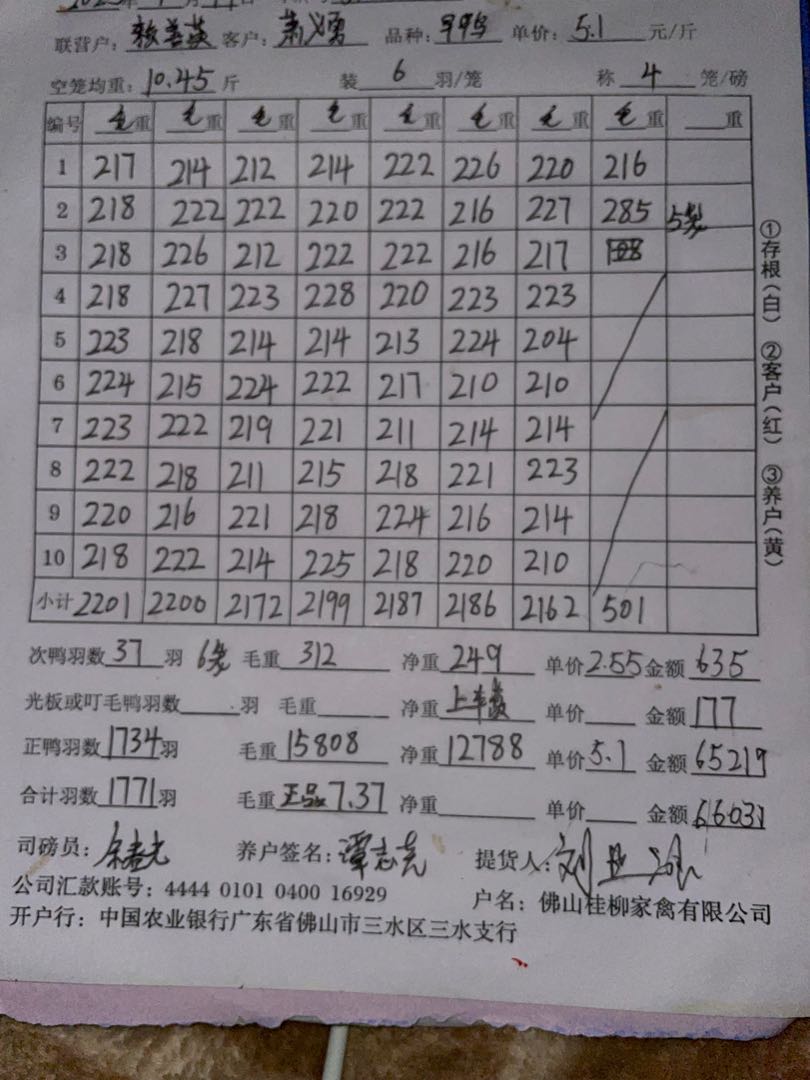 联营户: 赖善英 客户: 萧义勇 品种: 早鸭 单价: 5.1 元/斤
空笼均重: 10.45 斤 装 6 羽/笼 称 4 笼/磅
编号 毛重 毛重 毛重 毛重 毛重 毛重 毛重 毛重 重
1 217 214 212 214 222 226 220 216
2 218 222 222 220 222 216 227 285 5笼
3 218 226 212 222 222 216 217
4 218 227 223 228 220 223 223
5 223 218 214 214 213 224 204
6 224 215 224 222 217 210 210
7 223 222 219 221 211 214 214
8 222 218 211 215 218 221 223
9 220 216 221 218 224 216 214
10 218 222 214 225 218 220 210
小计 2201 2200 2172 2199 2187 2186 2162 501
①存根(白) ②客户(红) ③养户(黄)
次鸭羽数 37 羽 6笼 毛重 312 净重 249 单价 2.55 金额 635
光板或叮毛鸭羽数 羽 毛重 净重 上车费 单价 金额 177
正鸭羽数 1734 羽 毛重 15808 净重 12788 单价 5.1 金额 65219
合计羽数 1771 羽 毛重 正品 7.37 净重 单价 金额 66031
司磅员: 养户签名: 谭志亮 提货人: 刘
公司汇款账号: 4444 0101 0400 16929 户名: 佛山桂柳家禽有限公司
开户行: 中国农业银行广东省佛山市三水区三水支行